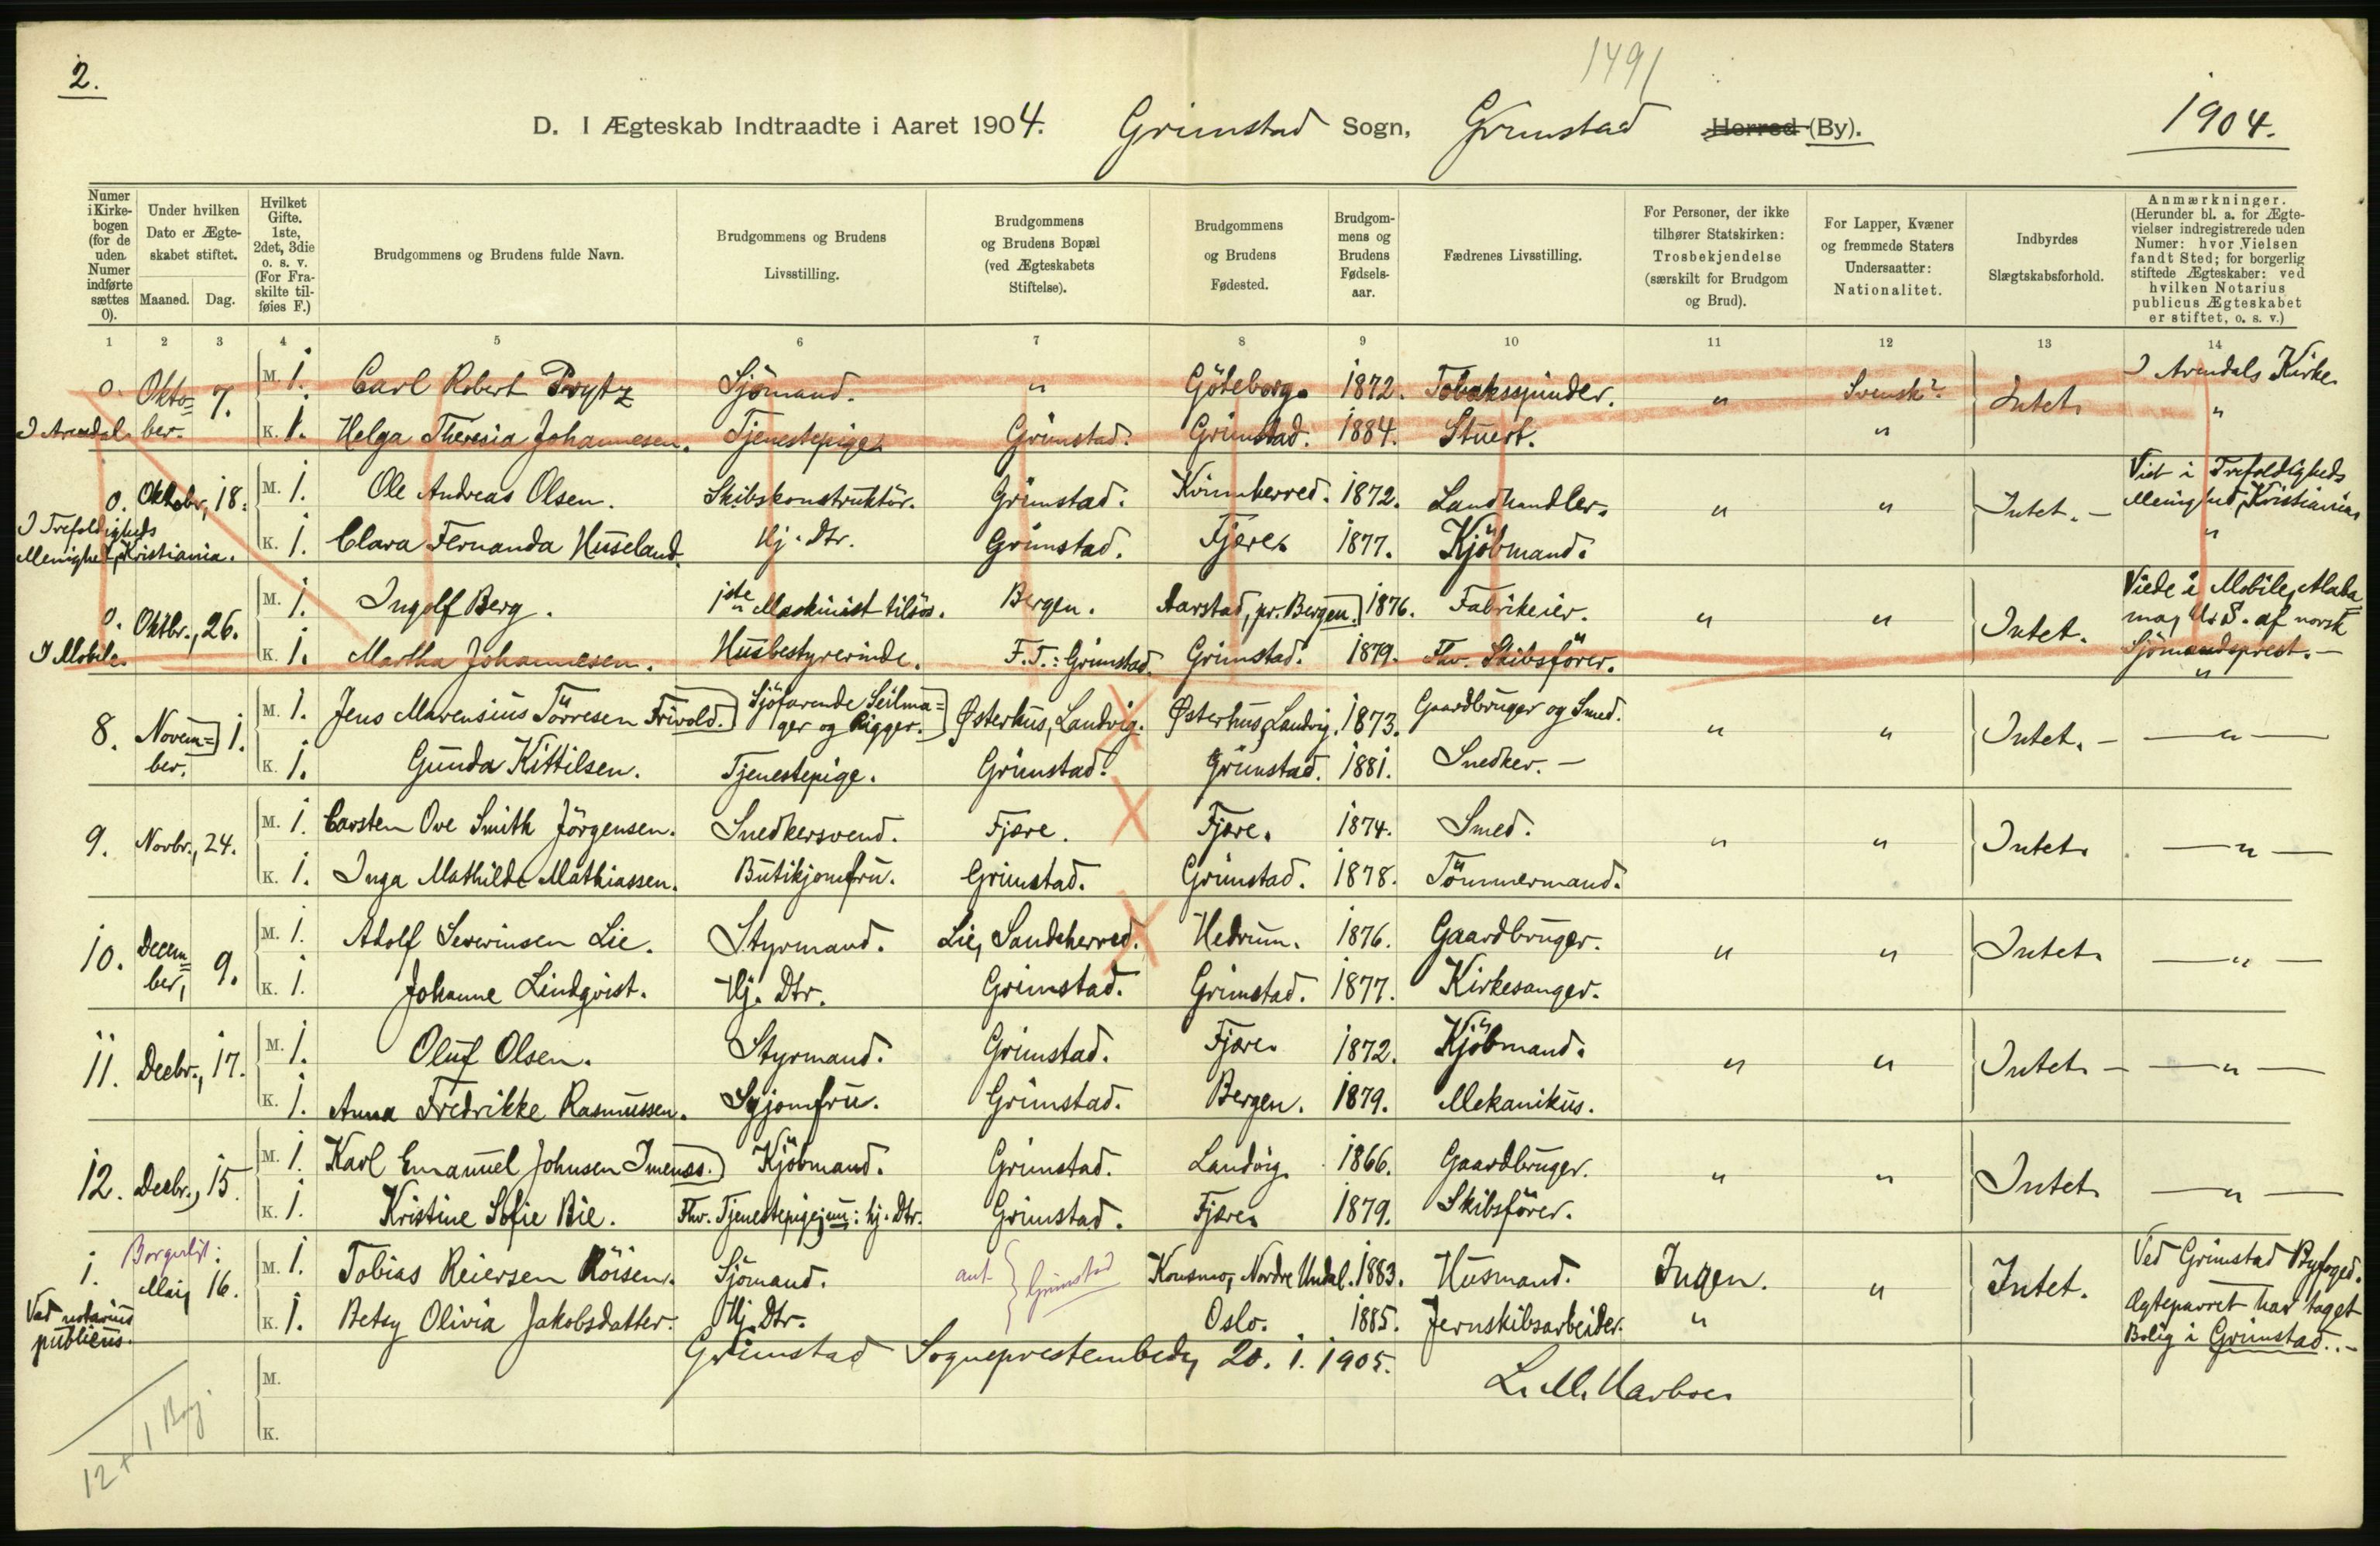 2.
1491
D. I Ægteskab Indtraadte i Aaret 1904. Grimstad Sogn, Grimstad Herred (By).
1904.
Numer i Kirkebogen (for de uden Numer indførte sættes 0).
Under hvilken Dato er Ægteskabet stiftet.
Maaned. Dag.
Hvilket Gifte. 1ste, 2det, 3die o. s. v. (For Fraskilte tilføies F.)
Brudgommens og Brudens fulde Navn.
Brudgommens og Brudens Livsstilling.
Brudgommens og Brudens Bopæl (ved Ægteskabets Stiftelse).
Brudgommens og Brudens Fødested.
Brudgommens og Brudens Fødselsaar.
Fædrenes Livsstilling.
For Personer, der ikke tilhører Statskirken: Trosbekjendelse (særskilt for Brudgom og Brud).
For Lapper, Kvæner og fremmede Staters Undersaatter: Nationalitet.
Indbyrdes Slægtskabsforhold.
Anmærkninger. (Herunder bl. a. for Ægtevielser indregistrerede uden Numer: hvor Vielsen fandt Sted; for borgerlig stiftede Ægteskaber: ved hvilken Notarius publicus Ægteskabet er stiftet, o. s. v.)
1 2 3 4 5 6 7 8 9 10 11 12 13 14
0. Oktober. 7. M. 1. Carl Robert Prytz Sjömand. " Göteborg. 1872. Tobaksspinder. " Svensk? Intet. I Arendals Kirke
I Arendal K. 1. Helga Theresia Johannesen. Tjenestepige. Grimstad. Grimstad. 1884. Stuert. " "
0. Oktober, 18. M. 1. Ole Andreas Olsen. Skibskonstruktör. Grimstad. Kvinnherred. 1872. Landhandler. " " Intet. – Viet i Trefoldigheds Menighed, Kristiania.
I Trefoldigheds Menighed, Kristiania. K. 1. Clara Fernanda Huseland. Hj. Dtr. Grimstad. Fjære. 1877. Kjöbmand. "
0. Oktbr., 26. M. 1. Ingolf Berg. 1ste Maskinist tilsös. Bergen. Aarstad, pr. Bergen. 1876. Fabrikeier. " " Intet. Viede i Mobile, Alabama, U. S. af norsk Sjömandsprest. –
I Mobile K. 1. Martha Johannesen. Husbestyrerinde. F. T.: Grimstad. Grimstad. 1879. Fhv. Skibsförer. "
8. November. 1. M. 1. Jens Marensius Törresen Frivold. Sjöfarende Seilmager og Rigger. Østerhus, Landvig. Østerhus, Landvig. 1873. Gaardbruger og Smed. " " Intet. – — " —
K. 1. Gunda Kittilsen. Tjenestepige. Grimstad. Grimstad. 1881. Snedker. –
9. Novbr., 24. M. 1. Carsten Ove Smith Jörgensen. Snedkersvend. Fjære. Fjære. 1874. Smed. " " Intet. — " —
K. 1. Inga Mathilde Mathiassen. Butikjomfru. Grimstad. Grimstad. 1878. Tömmermand.
10. December, 9. M. 1. Adolf Severinsen Lie. Styrmand. Lie, Sandeherred. Hedrum. 1876. Gaardbruger. " " Intet. — " —
K. 1. Johanne Lindqvist. Hj. Dtr. Grimstad. Grimstad. 1877. Kirkesanger.
11. Decbr., 17. M. 1. Oluf Olsen. Styrmand. Grimstad. Fjære. 1872. Kjöbmand. " " Intet – — " —
K. 1. Anna Fredrikke Rasmussen. Syjomfru. Grimstad. Bergen. 1879. Mekanikus.
12. Decbr., 15. M. 1. Karl Emanuel Johnsen Imenæs. Kjöbmand. Grimstad. Landvig. 1866. Gaardbruger. " " Intet — " —
K. 1. Kristine Sofie Bie. Fhv. Tjenestepige; nu: hj. Dtr. Grimstad. Fjære. 1879. Skibsförer.
Borgerligt:
1. Mai, 16. M. 1. Tobias Reiersen Röisen. Sjömand. ant. Grimstad Konsmo, Nordre Undal. 1883. Husmand. Ingen. " Intet. Ved Grimstad Byfoged. Ægteparret har taget Bolig i Grimstad. –
Ved notarius publicus. K. 1. Betsy Olivia Jakobsdatter. Hj. Dtr. Oslo. 1885. Jernskibsarbeider. "
Grimstad Sogneprestembede, 20. 1. 1905.
M. L. M. Harboe
K.
12 + 1 Borg.